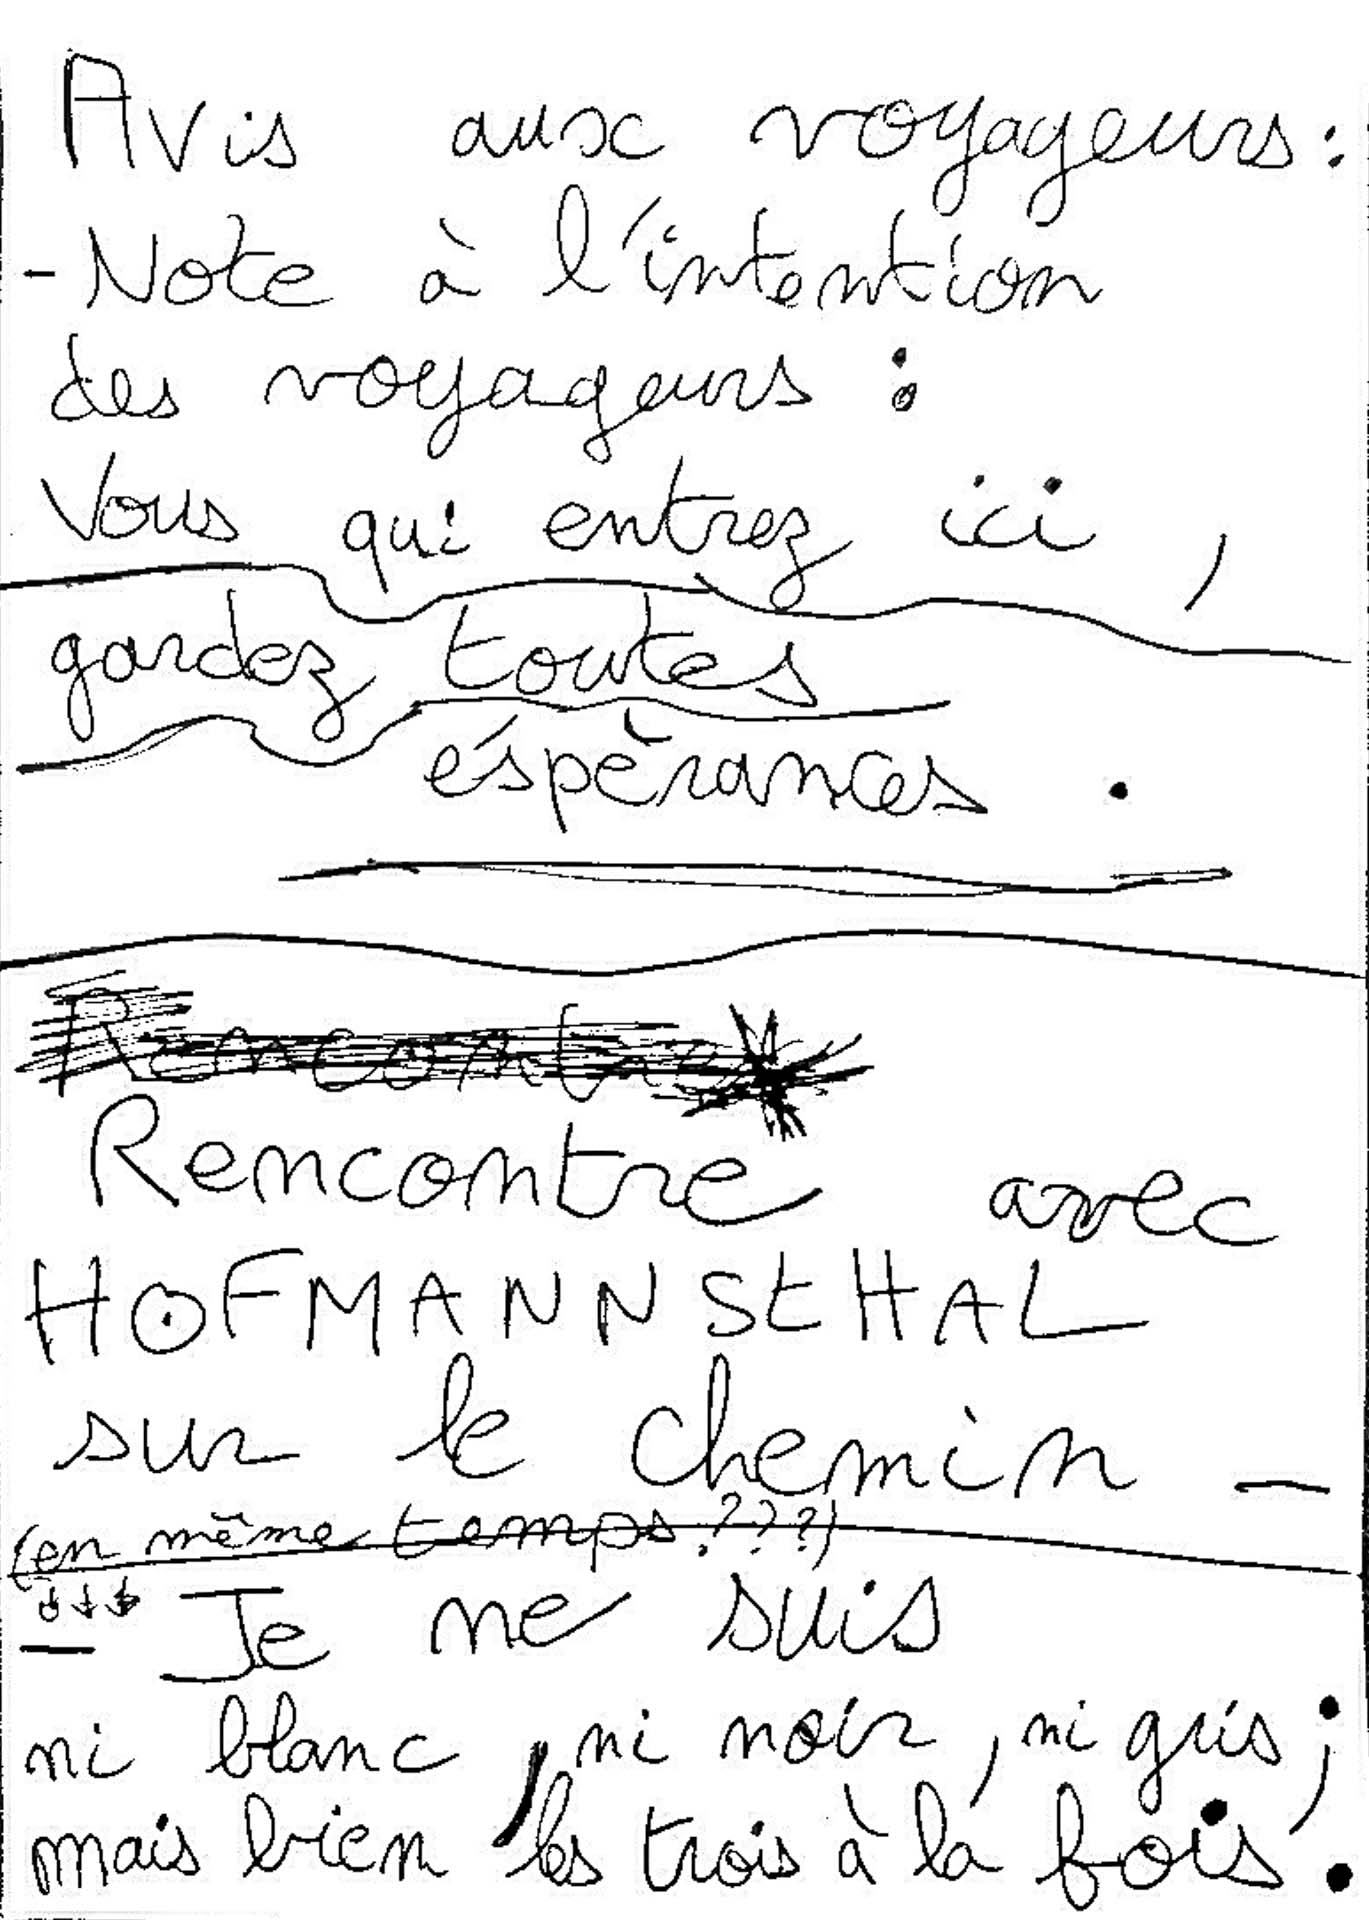 Avis aux voyageurs :
- Note à l'intention
des voyageurs :
Vous qui entrez ici ,
gardez toutes
éspèrances .
Rencontre
Rencontre avec
HOFMANNStHAL
sur le chemin —
(en même temps ???)
↓↓↓
— Je ne suis
ni blanc , ni noir , ni gris ;
mais bien les trois à la fois .